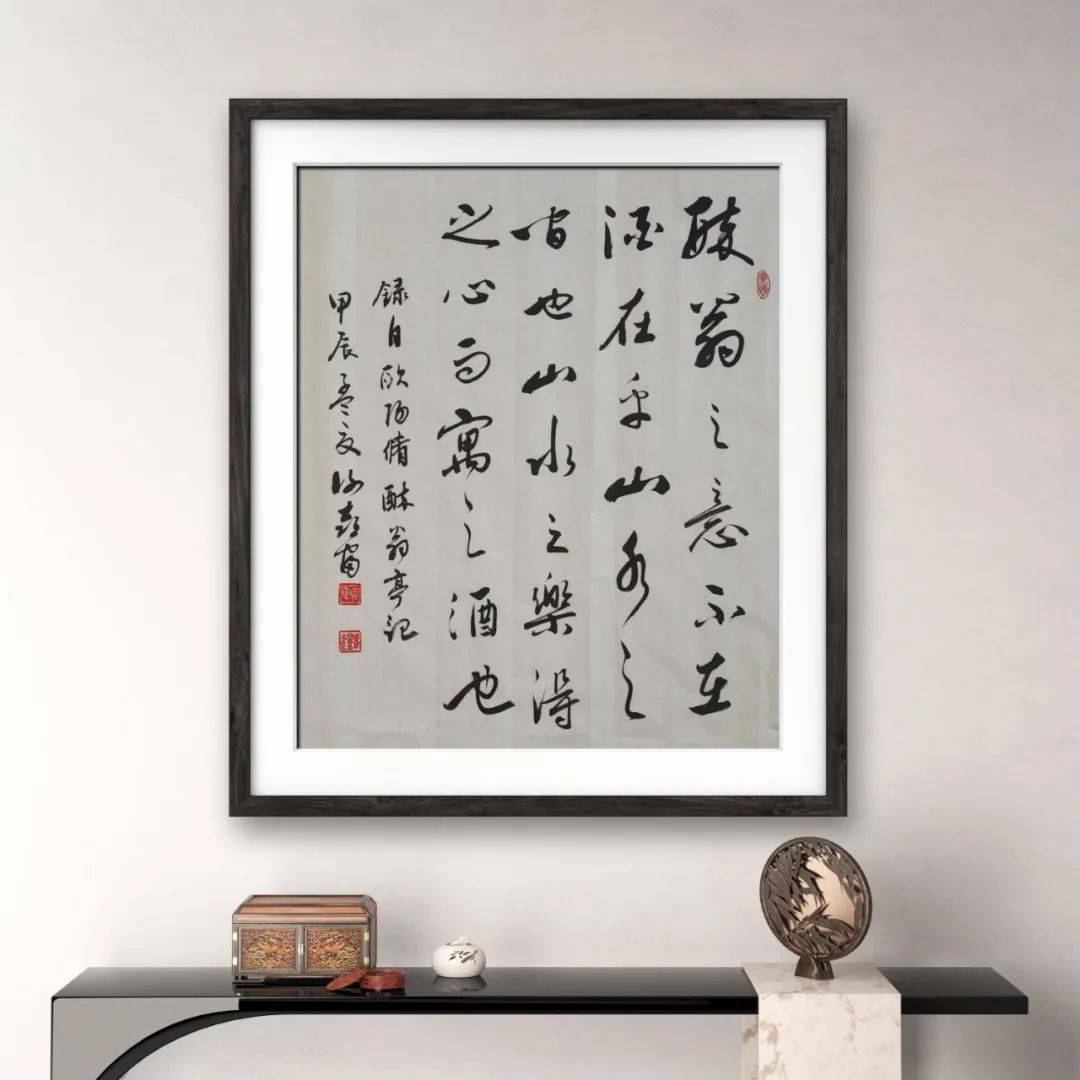 醉翁之意不在
酒在乎山水之
間也山水之樂得
之心而寓之酒也
録自欧阳脩醉翁亭记
甲辰孟夏